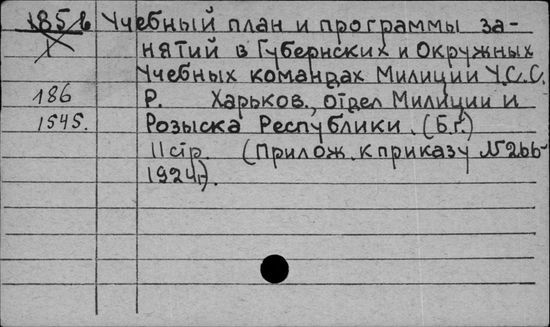 185 в Учебный план и программы за-
1 нятий в Губернских и Окружных
Учебных командах Милиции У.С.С.
186 Р. Харьков., отдел Милиции и
1545. Розыска Республики. (Б.г.)
11 стр. (Прилож. к приказу №266-
1924г).